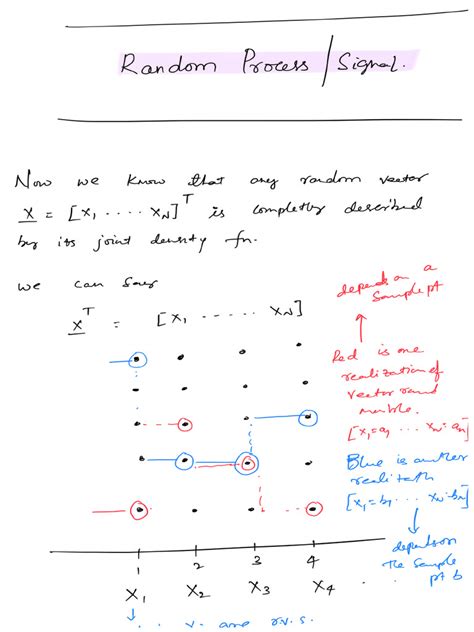 Random Process / Signal.
Now we know that any random vector
X = [X1 .... XN]^T is completly described
by its joint density fn.
we can say
X^T = [X1, ...... XN]
depends on a
Sample pt
Red is one
realization of
vector rand
[X1=a1 ... XN=aN]
Blue is another
[X1=b1 ... XN=bN]
depends on
the sample
pt b
1 2 3 4
X1 X2 X3 X4 . .
are r.v.s.